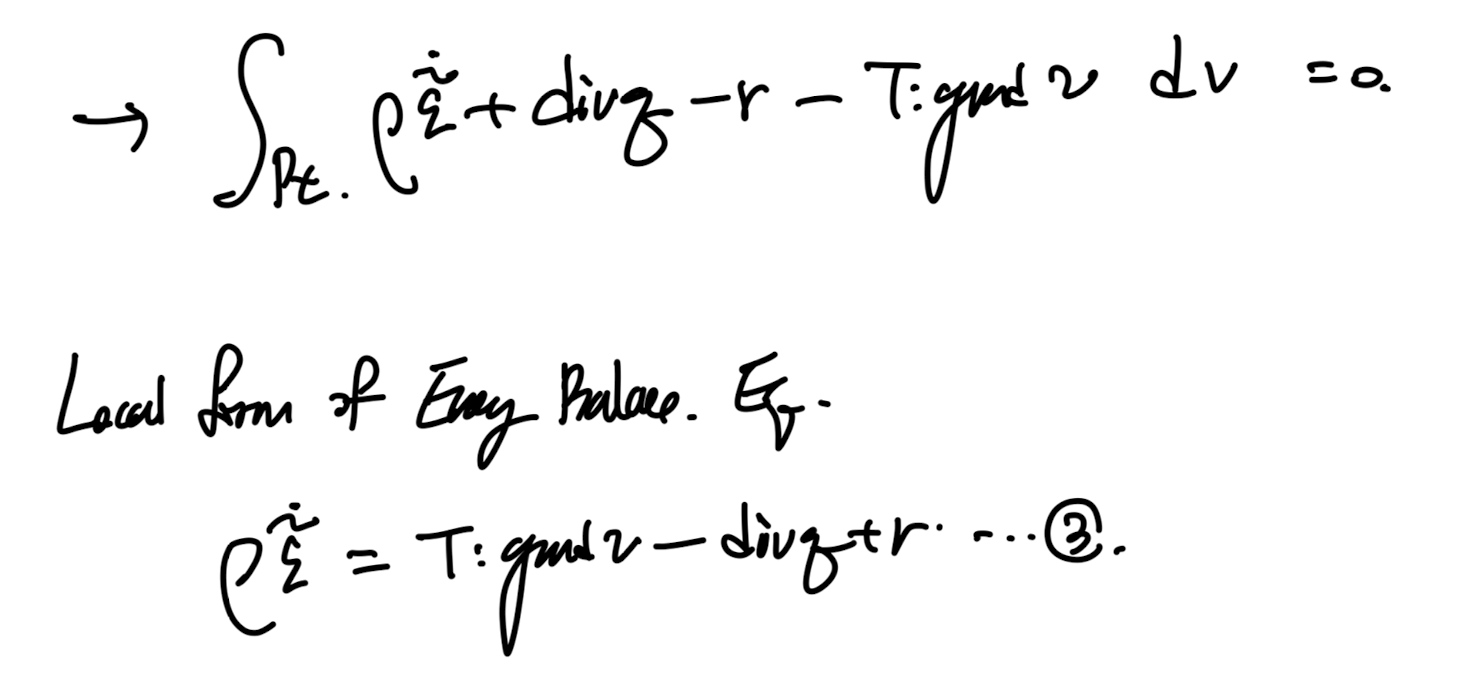 → ∫_{Pt.} ρ\dot{\tilde{ε}} + div q − r − T : grad v dv = 0.
Local form of Energy Balace. Eq.
ρ\dot{\tilde{ε}} = T : grad v − div q + r. ... ③.